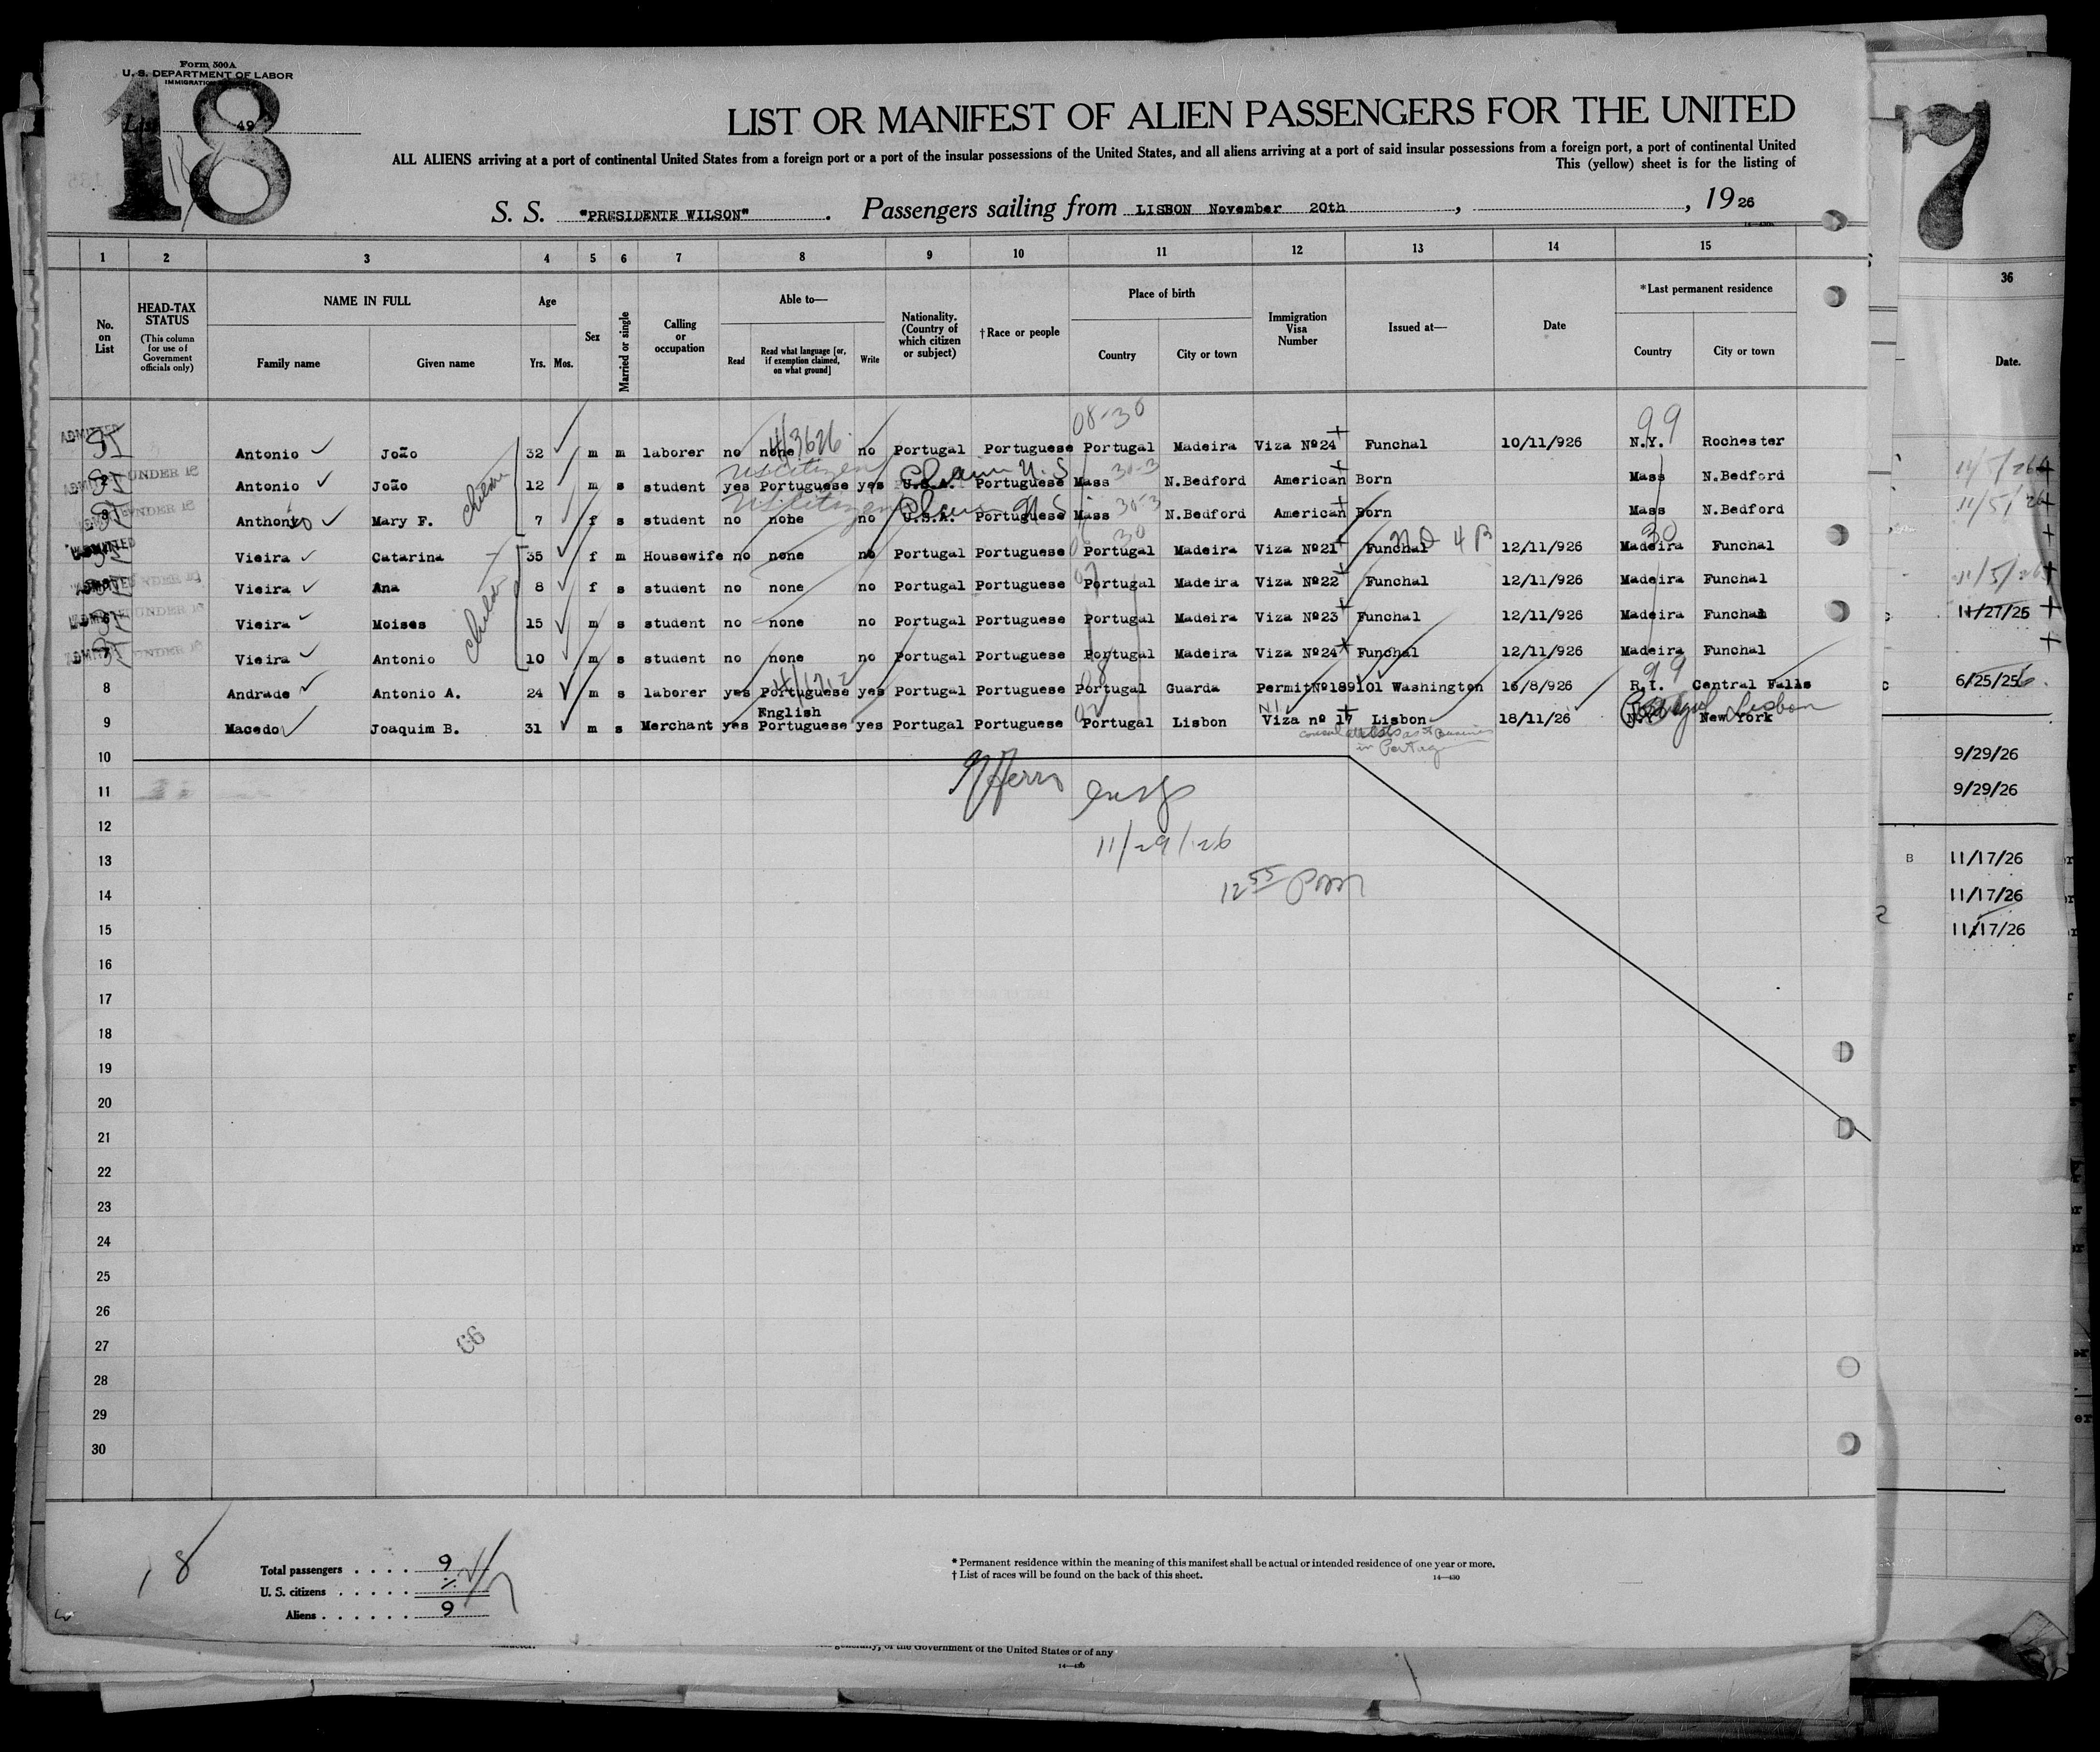 Form 500A
U. S. DEPARTMENT OF LABOR
18
49
LIST OR MANIFEST OF ALIEN PASSENGERS FOR THE UNITED
ALL ALIENS arriving at a port of continental United States from a foreign port or a port of the insular possessions of the United States, and all aliens arriving at a port of said insular possessions from a foreign port, a port of continental United
This (yellow) sheet is for the listing of
S. S. "PRESIDENTE WILSON". Passengers sailing from LISBON November 20th, , 1926
1 2 3 4 5 6 7 8 9 10 11 12 13 14 15
No. on List
HEAD-TAX STATUS (This column for use of Government officials only)
NAME IN FULL Family name Given name
Age Yrs. Mos.
Sex
Married or single
Calling or occupation
Able to— Read Read what language [or, if exemption claimed, on what ground] Write
Nationality. (Country of which citizen or subject)
†Race or people
Place of birth Country City or town
Immigration Visa Number
Issued at—
Date
*Last permanent residence Country City or town
08-30 99
ADMITTED Antonio João 32 m m laborer no none no Portugal Portuguese Portugal Madeira Viza Nº24 Funchal 10/11/926 N.Y. Rochester
UNDER 16 Antonio João 12 m s student yes Portuguese yes U.S.A. Portuguese Mass N.Bedford American Born Mass N.Bedford
UNDER 16 Anthonio Mary F. 7 f s student no none no U.S.A. Portuguese Mass N.Bedford American Born Mass N.Bedford
Vieira Catarina 35 f m Housewife no none no Portugal Portuguese Portugal Madeira Viza Nº21 Funchal 12/11/926 Madeira Funchal
Vieira Ana 8 f s student no none no Portugal Portuguese Portugal Madeira Viza Nº22 Funchal 12/11/926 Madeira Funchal
UNDER 16 Vieira Moises 15 m s student no none no Portugal Portuguese Portugal Madeira Viza Nº23 Funchal 12/11/926 Madeira Funchal
UNDER 16 Vieira Antonio 10 m s student no none no Portugal Portuguese Portugal Madeira Viza Nº24 Funchal 12/11/926 Madeira Funchal
99
8 Andrade Antonio A. 24 m s laborer yes Portuguese yes Portugal Portuguese Portugal Guarda PermitNº189101 Washington 16/8/926 R.I. Central Falls
English
9 Macedo Joaquim B. 31 m s Merchant yes Portuguese yes Portugal Portuguese Portugal Lisbon Viza nº 17 Lisbon 18/11/26 N.Y. New York Lisbon
10
11
12
13
14
15
16
17
18
19
20
21
22
23
24
25
26
27
28
29
30
11/29/26
12 55 PM
66
18
Total passengers . . . . 9
U. S. citizens . . . . .
Aliens . . . . . . 9
* Permanent residence within the meaning of this manifest shall be actual or intended residence of one year or more.
† List of races will be found on the back of this sheet.
14—430
of the Government of the United States or of any
7
36
Date.
11/5/26
11/5/26
11/5/26
11/27/25
6/25/26
9/29/26
9/29/26
B 11/17/26
11/17/26
11/17/26